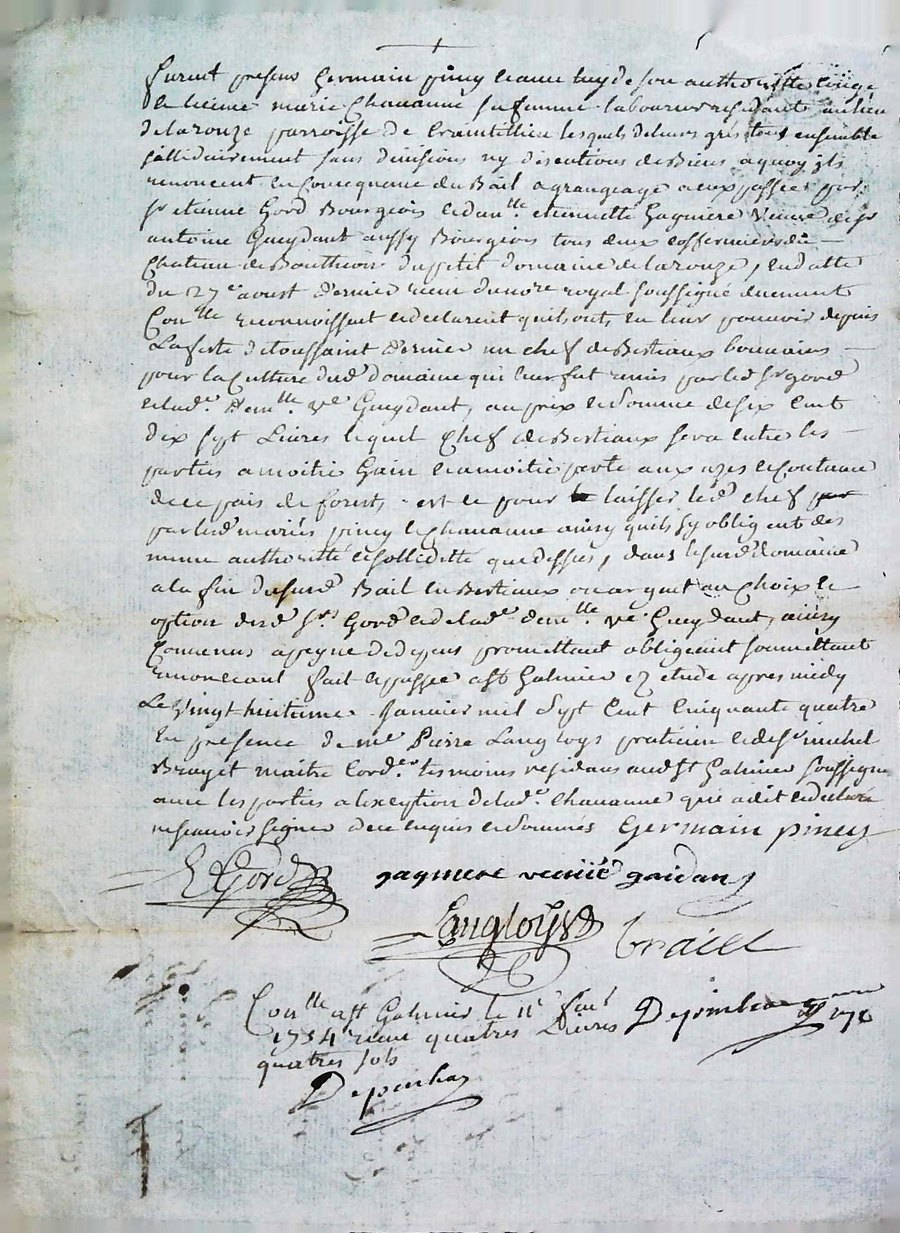 furent presens Germain piney et avec luy de son authorité
marie Chavanne sa femme laboureur residants au lieu
de larouze parroisse de Craintillieu lesquels de leurs grés tous ensemble
sollidairement sans divisions ny discutions de Biens a quoy ils
renoncent en Consequance du Bail a grangeage a eux passée par
Sr etienne Gord Bourgeois et dlle etiennette Gagniere Veuve de Sr
antoine Gueydant aussy Bourgeois tous deux cosfermiers du
Chateau de Bouthéon du petit domaine de larouze, en datte
du 27e aoust dernier receu du nore royal soussigné duement
Conllé reconnoissent et declarent quils ont en leur pouvoir depuis
La feste de toussaint dernier un chef de Bestiaux bouvains
pour la Culture dud domaine qui leur fut remis par led Sr gord
et lade demlle ve Gueydant, au prix et somme de six cent
dix sept Livres lequel Chef de Bestiaux sera entre les
parties a moitié Gain et a moitié perte aux uzes et Coutume
de ce païs de forests est ce pour laisser led chef
par lesd mariés piney et Chavanne ainsy quils sy obligent des
meme authorité et solliditté que dessus, dans le susd domaine
a la fin dusurd Bail en Bestiaux ou argent au Choix et
option desd Srs Gord et de lade demlle ve Gueydant, ainsy
Convenus a peyne de depens promettant obligeant soumettant
renonceant fait et passée a St Galmier ez etude apres midy
Le Vingt huitieme Janvier mil Sept Cent Cinquante quatre
En presence de me Pierre Langloys praticien et de Sr michel
Brayet maitre Corder tesmoins residans aud St Galmier soussignés
avec les parties a lexeption de lade Chavanne qui a dit et declaré
ne scavoir signer de ce enquis et sommés Germain piney
E Gord gagniere veuve gaidan
Langloys Braiet
Conllé a St Galmier le 11e
1754 receu quatres Livres
quatres sols